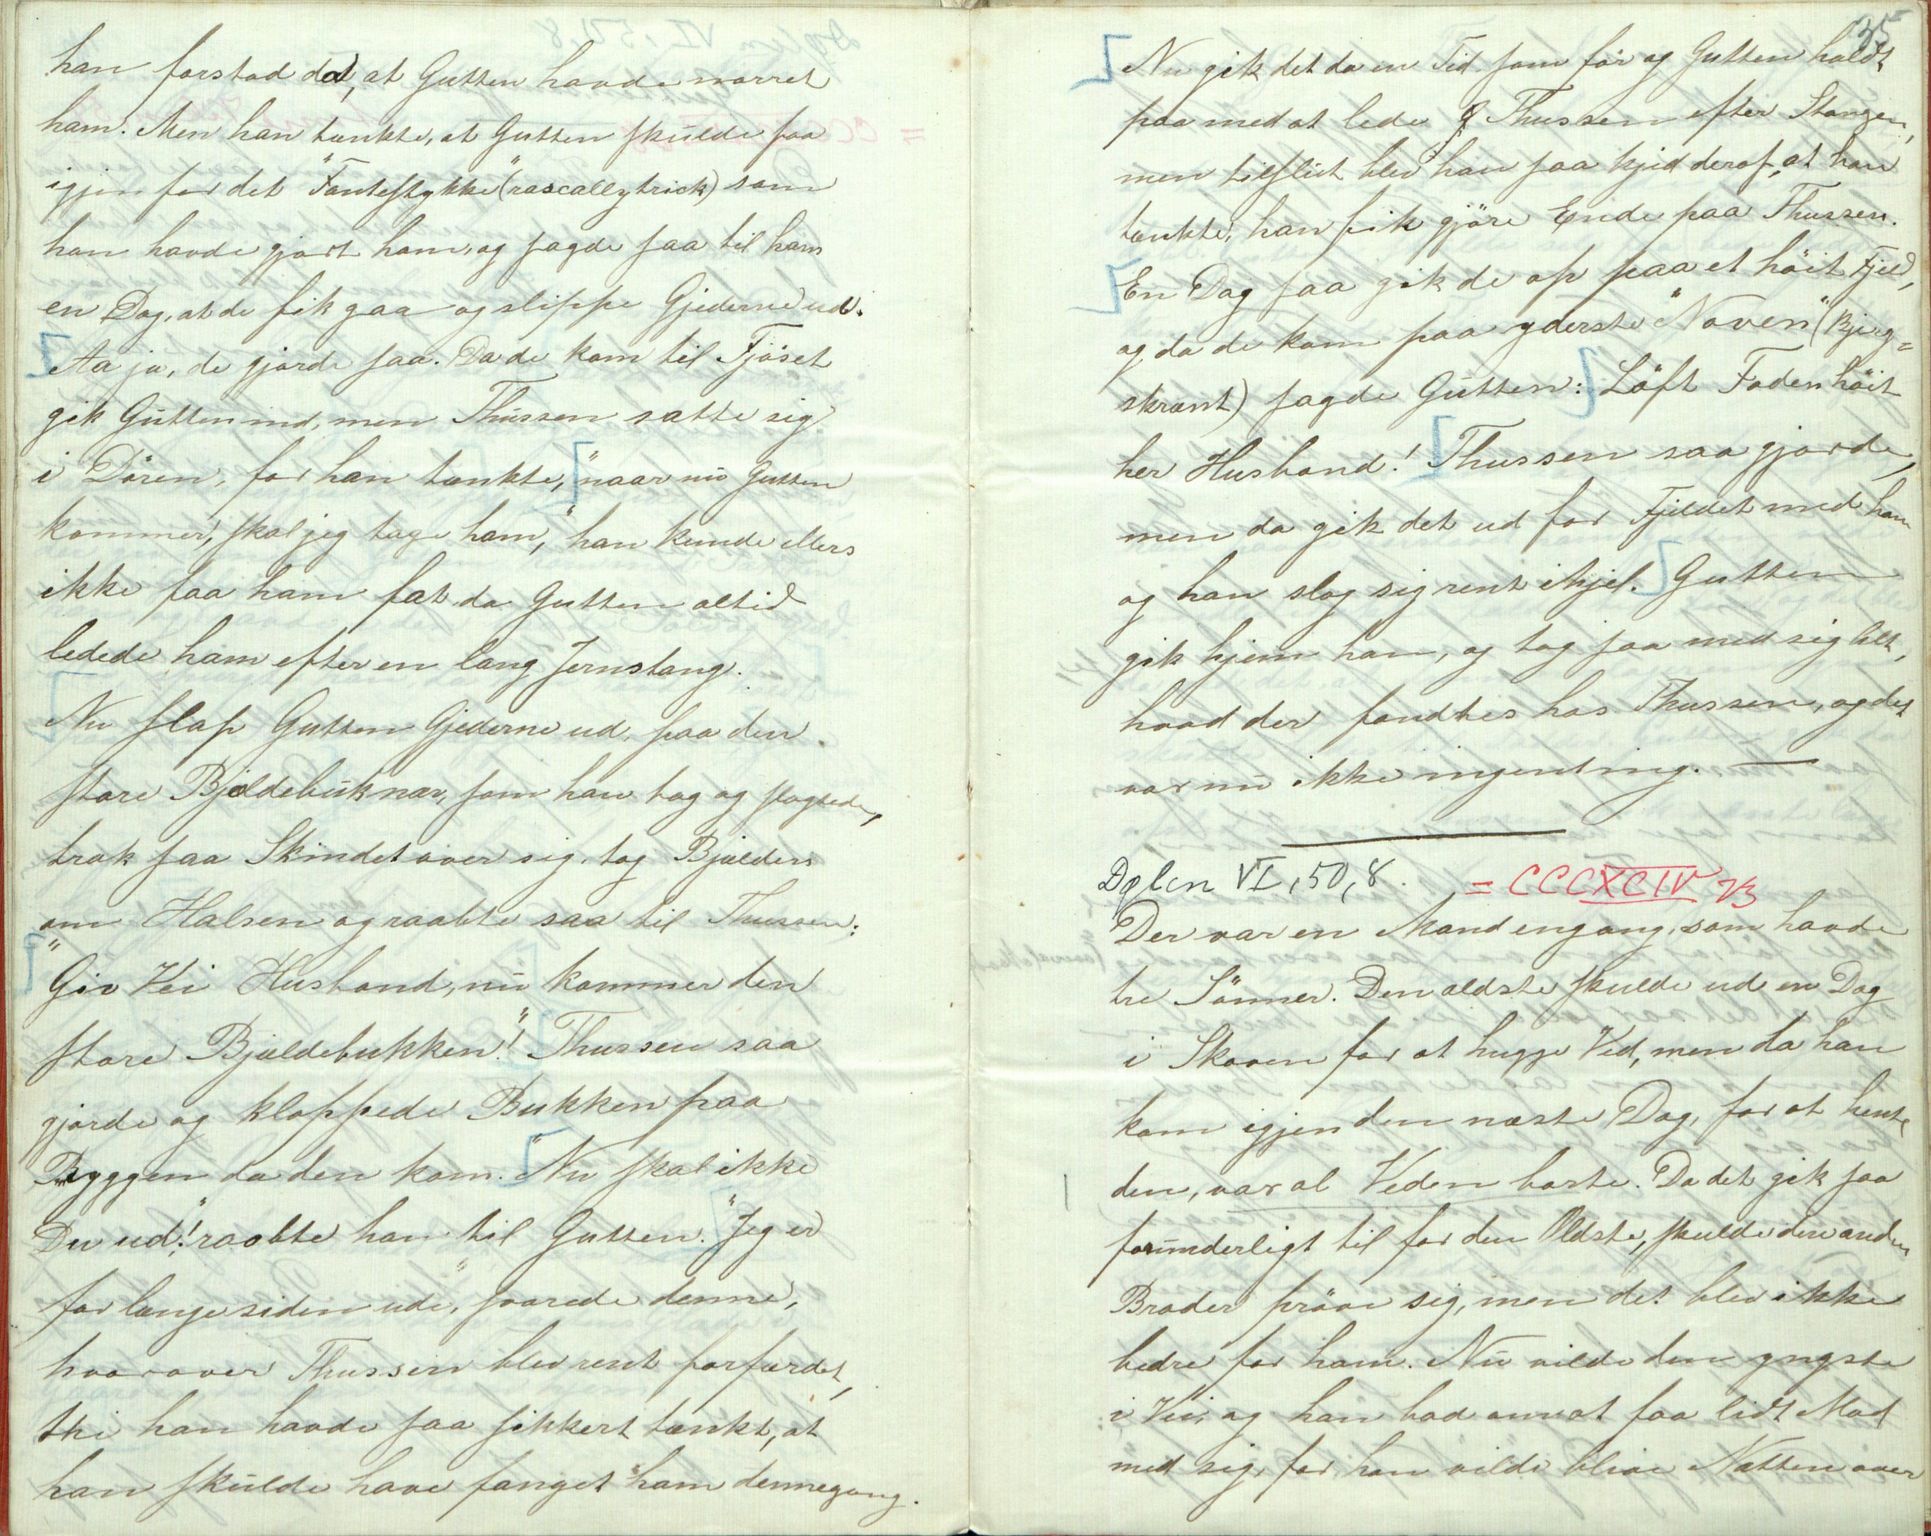 han forstod da, at Gutten havde narret
ham. Men han tænkte, at Gutten skulde faa
igjen for det "Fantestykke" (rascally trick) som
han havde gjort ham, og sagde saa til ham
en Dag, at de fik gaa og slippe Gjederne ud.
Aa ja, de gjorde saa. Da de kom til Fjöset
gik Gutten ind, men Thussen satte sig
i Dören, for han tænkte, "naar nu Gutten
kommer, skal jeg tage ham," han kunde ellers
ikke faa ham fat da Gutten altid
ledede ham efter en lang Jernstang.
Nu slap Gutten Gjederne ud, paa den
store Bjeldebuk nær, som han tog og slagtede,
trak saa Skindet over sig, tog Bjælden
om Halsen og raabte saa til Thussen:
"Giv Vei Husbond, nu kommer den
store Bjældebukken!" Thussen saa
gjorde og klappede Bukken paa
Ryggen da den kom. "Nu skal ikke
Du ud!" raabte han til Gutten. "Jeg er
for længe siden ude," svarede denne,
hvorover Thussen blev rent forfærdet,
thi han havde saa sikkert tænkt, at
han skulde have fanget ham dennegang.
35
Nu gik det da en Tid som för og Gutten holdt
paa med at lede Thussen efter Stangen,
men tilslut blev han saa kjed deraf, at han
tænkte, han fik gjöre Ende paa Thussen.
En Dag saa gik de op paa et höit Fjeld,
og da de kom paa yderste "Noven" (Bjerg=
skrænt) sagde Gutten: Löft Foden höit
her Husbond! Thussen saa gjorde,
men da gik det ud for Fjeldet med ham
og han slog sig rent ihjel. Gutten
gik hjem han, og tog saa med sig alt,
hvad der fandtes hos Thussen, og det
var nu ikke ingenting. —
Dølen VI, 50, 8. = CCCXCIV
Der var en Mand engang, som havde
tre Sönner. Den ældste skulde ud en Dag
i Skoven for at hugge Ved, men da han
kom igjen den næste Dag, for at hente
den, var al Veden borte. Da det gik saa
forunderligt til for den Ældste, skulde den anden
Broder pröve sig, men det blev ikke
bedre for ham. Nu vilde den yngste
i Vei, og han bad om at faa lidt Mad
med sig, for han vilde blive Natten over